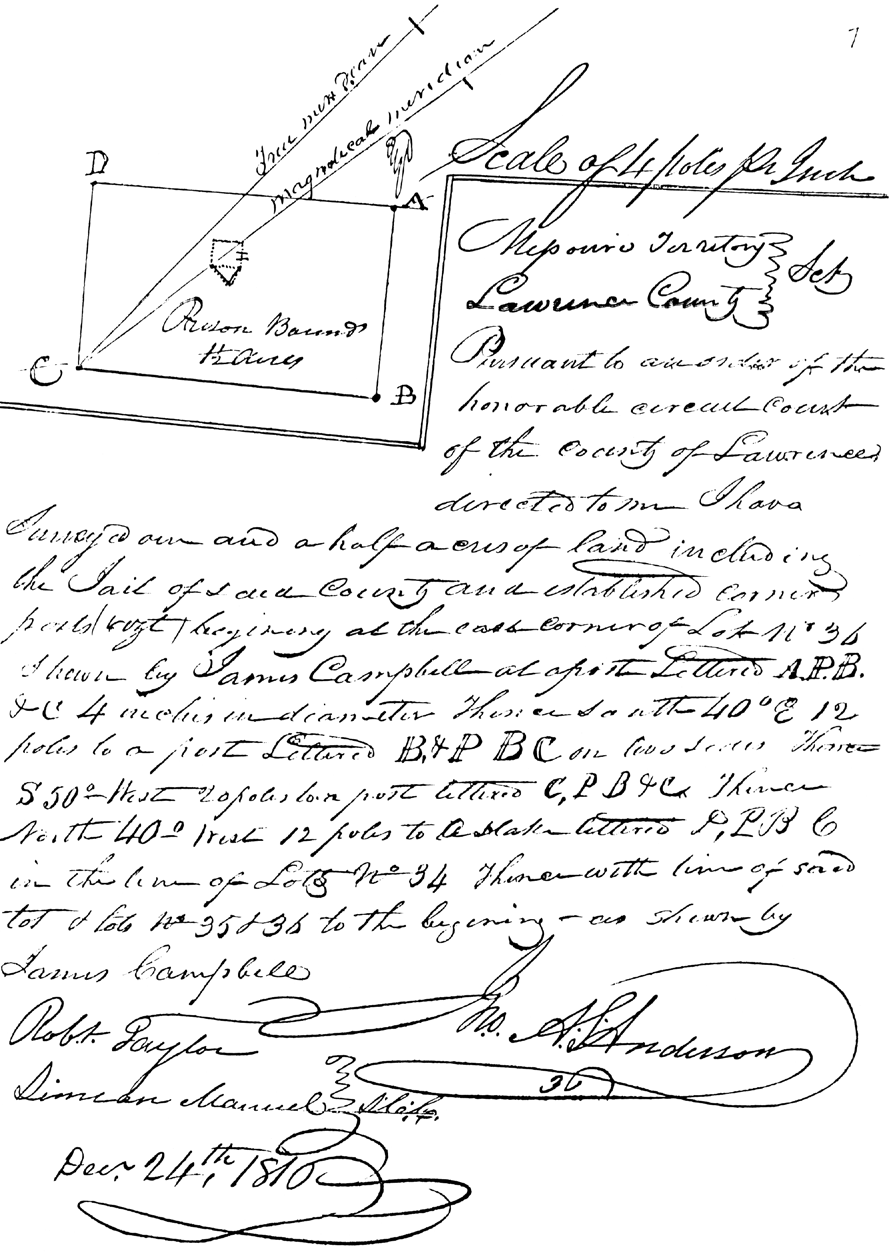 7
True meridian
Magnetical meridian
D
A
Scale of 4 poles pr Inch
Missouri Territory
Lawrence County
Sct
Prison Bounds
1½ Acres
C
B
Pursuant to an order of the
honorable circuit Court
of the County of Lawrence
directed to me I have
Survey'd one and a half acres of land including
the Jail of said County and established corner
posts (vizt) begining at the east corner of Lot No 36
shown by James Campbell at a post Lettered A.P.B.
& C 4 inches in diameter Thence south 40° E 12
poles to a post Lettered B, & P B C on two sides Thence
S 50° West 20 poles to a post lettered C, P B & C Thence
North 40° West 12 poles to a stake lettered D, P B C
in the line of Lots No 34 Thence with line of said
lot & lots No 35 & 36 to the begining - as shown by
James Campbell
Robt. Taylor
Jno. A. S. Anderson
Simean Manuel
Decr. 24th, 1816